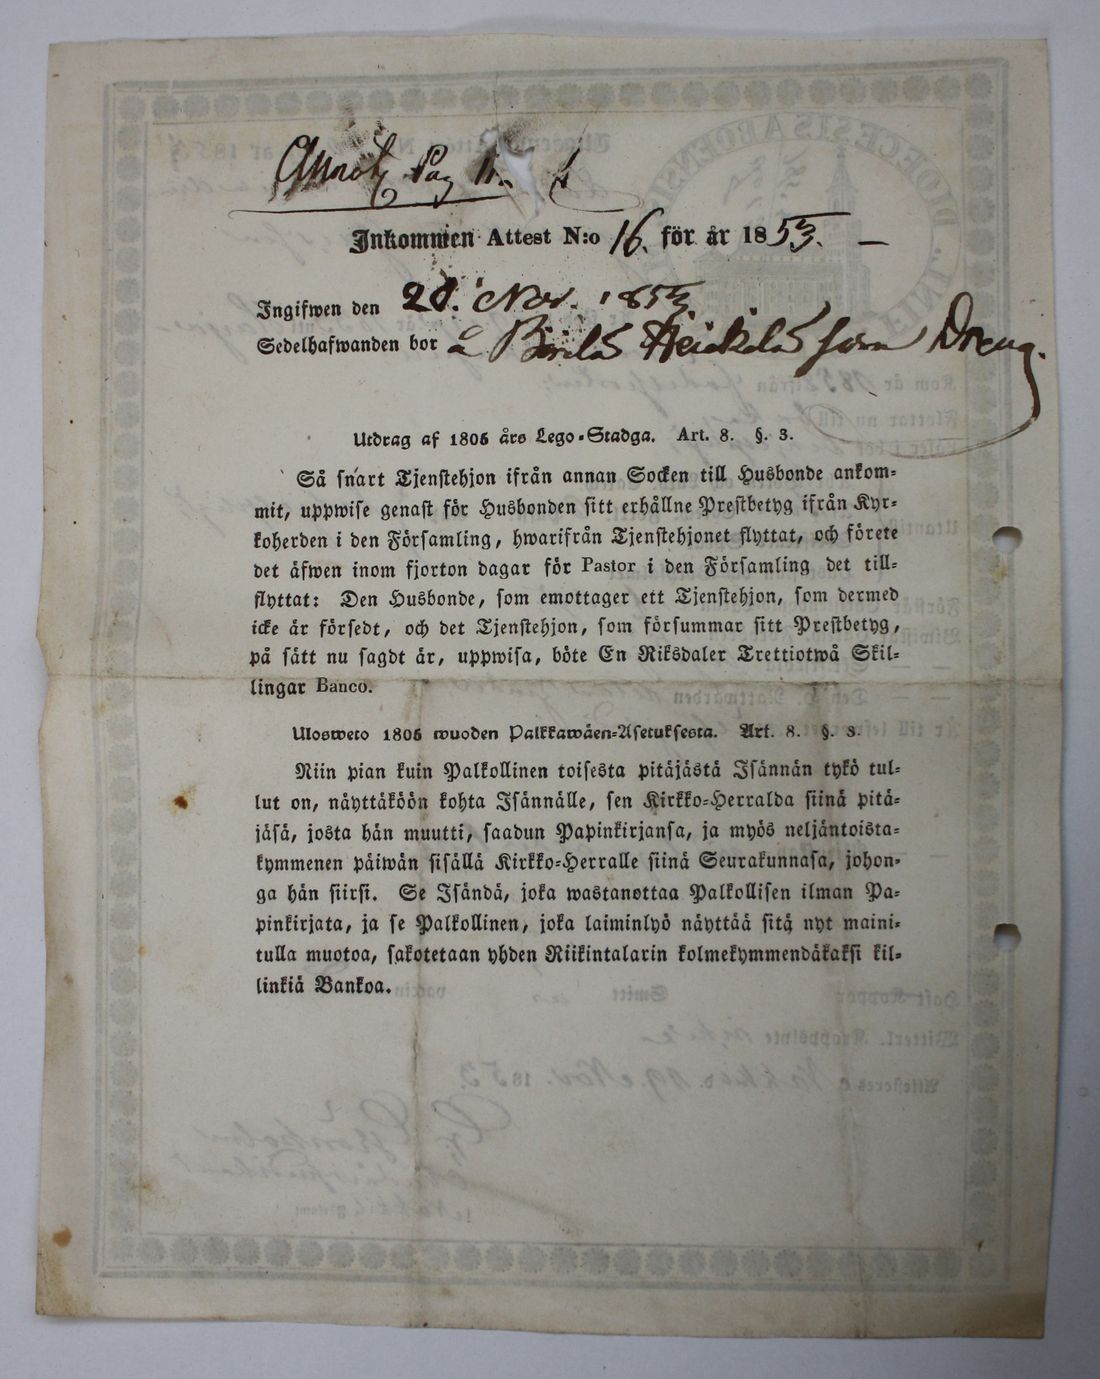 Annot. Pag 11.
Inkommen Attest N:o 16. för år 1853. —
Ingifwen den 20. Nov. 1853
Sedelhafwanden bor å Bjerila Heickilä som Dreng.
Utdrag af 1805 års Lego-Stadga. Art. 8. §. 3.
Så snart Tjenstehjon ifrån annan Socken till Husbonde ankom-
mit, uppwise genast för Husbonden sitt erhållne Prestbetyg ifrån Kyr-
koherden i den Församling, hwarifrån Tjenstehjonet flyttat, och förete
det äfwen inom fjorton dagar för Pastor i den Församling det till-
flyttat: Den Husbonde, som emottager ett Tjenstehjon, som dermed
icke är försedt, och det Tjenstehjon, som försummar sitt Prestbetyg,
på sätt nu sagdt är, uppwisa, böte En Riksdaler Trettiotwå Skil-
lingar Banco.
Ulosweto 1805 wuoden Palkkawäen-Asetuksesta. Art. 8. §. 3.
Niin pian kuin Palkollinen toisesta pitäjästä Isännän tykö tul-
lut on, näyttäköön kohta Isännälle, sen Kirkko-Herralda siinä pitä-
jäsä, josta hän muutti, saadun Papinkirjansa, ja myös neljäntoista-
kymmenen päiwän sisällä Kirkko-Herralle siinä Seurakunnasa, johon-
ga hän siirsi. Se Isändä, joka wastanottaa Palkollisen ilman Pa-
pinkirjata, ja se Palkollinen, joka laiminlyö näyttää sitä nyt maini-
tulla muotoa, sakotetaan yhden Riikintalarin kolmekymmendäkaksi kil-
linkiä Bankoa.